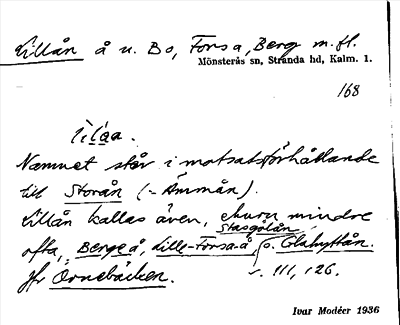 Lillån å u. Bo, Forsa, Berg m. fl.
Mönsterås sn, Stranda hd, Kalm. l.
168
Namnet står i motsatsförhållande
till Storån (= Ämmån).
Lillån kallas även, ehuru mindre
Stasgölån,
ofta, Berge å, Lille-Forsa-å o. Glahyttån.
jfr Ornebäcken. s. 111, 126.
Ivar Modéer 1936